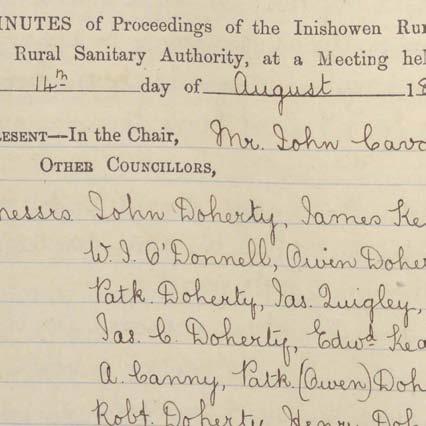 INUTES of Proceedings of the Inishowen Rur
Rural Sanitary Authority, at a Meeting hel
14th day of August 18
ESENT—In the Chair, Mr. John Cavo
OTHER COUNCILLORS,
Messrs John Doherty, James Ke
W. J. O'Donnell, Owen Doher
Patk. Doherty, Jas. Quigley,
Jas. C. Doherty, Edwd Kea
A. Canny, Patk. (Owen) Doh
Robt. Doherty, Henry Doh